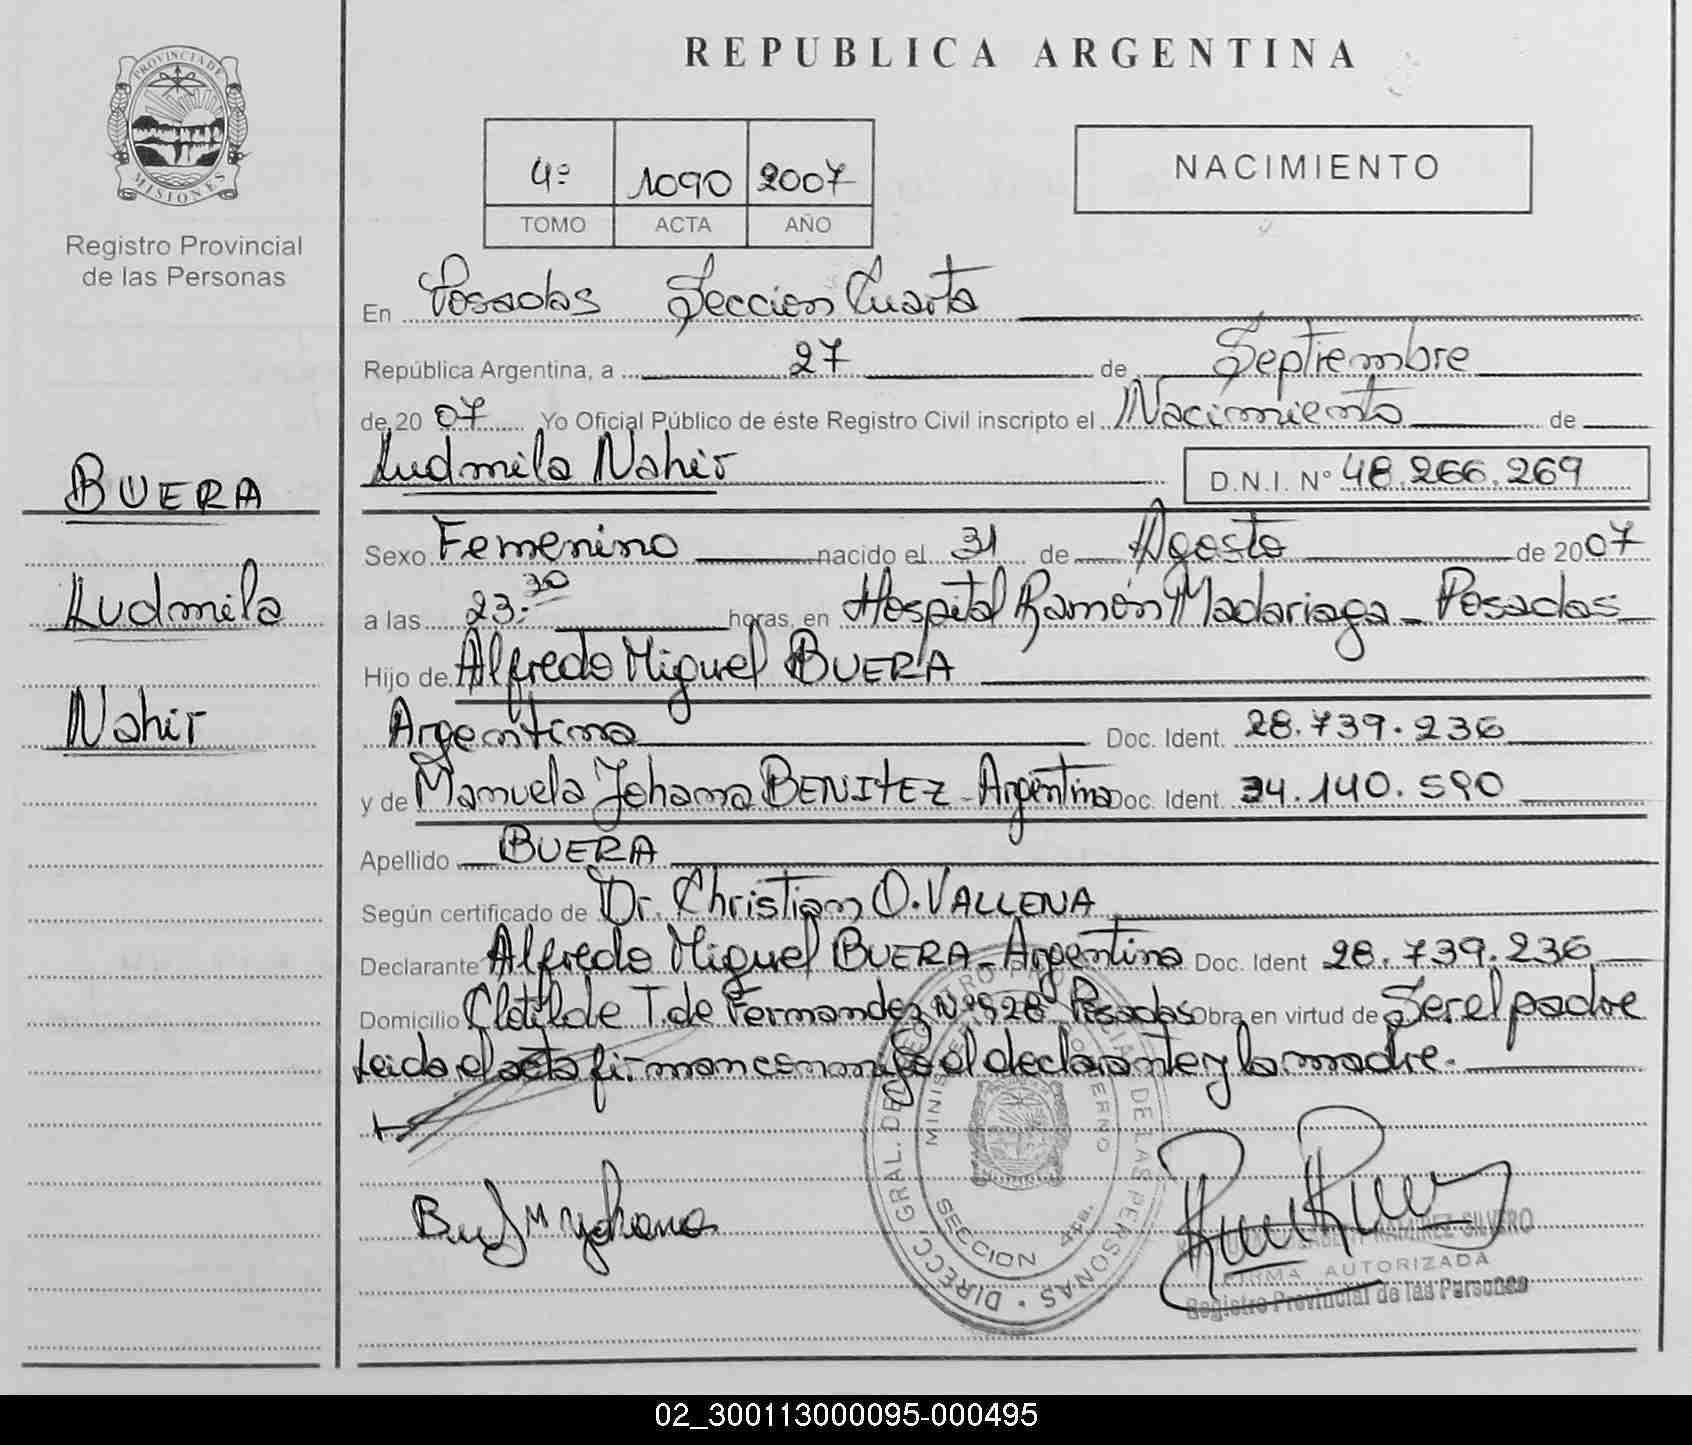 REPUBLICA ARGENTINA
PROVINCIA DE
MISIONES
Registro Provincial
de las Personas
4º 1090 2007
TOMO ACTA AÑO
NACIMIENTO
En Posadas Seccion Cuarta
República Argentina, a 27 de Septiembre
de 20 07 Yo Oficial Público de éste Registro Civil inscripto el Nacimiento de
Ludmila Nahir D.N.I. Nº 48.266.269
BUERA
Ludmila
Nahir
Sexo Femenino nacido el 31 de Agosto de 2007
a las 23:30 horas, en Hospital Ramón Madariaga - Posadas
Hijo de Alfredo Miguel BUERA
Argentina Doc. Ident. 28.739.236
y de Manuela Johana BENITEZ - Argentina Doc. Ident. 34.140.590
Apellido BUERA
Según certificado de Dr. Christian O. VALLENA
Declarante Alfredo Miguel BUERA - Argentino Doc. Ident 28.739.236
Domicilio Clotilde T. de Fermandez Nº 928 Posadas Obra en virtud de Ser el padre
Leida el acta firman conmigo el declarante y la madre.
DIRECC. GRAL. DEL REGISTRO DE LAS PERSONAS
SECCION 4ta.
RAMIREZ SILVERO
FIRMA AUTORIZADA
Registro Provincial de las Personas
02_300113000095-000495